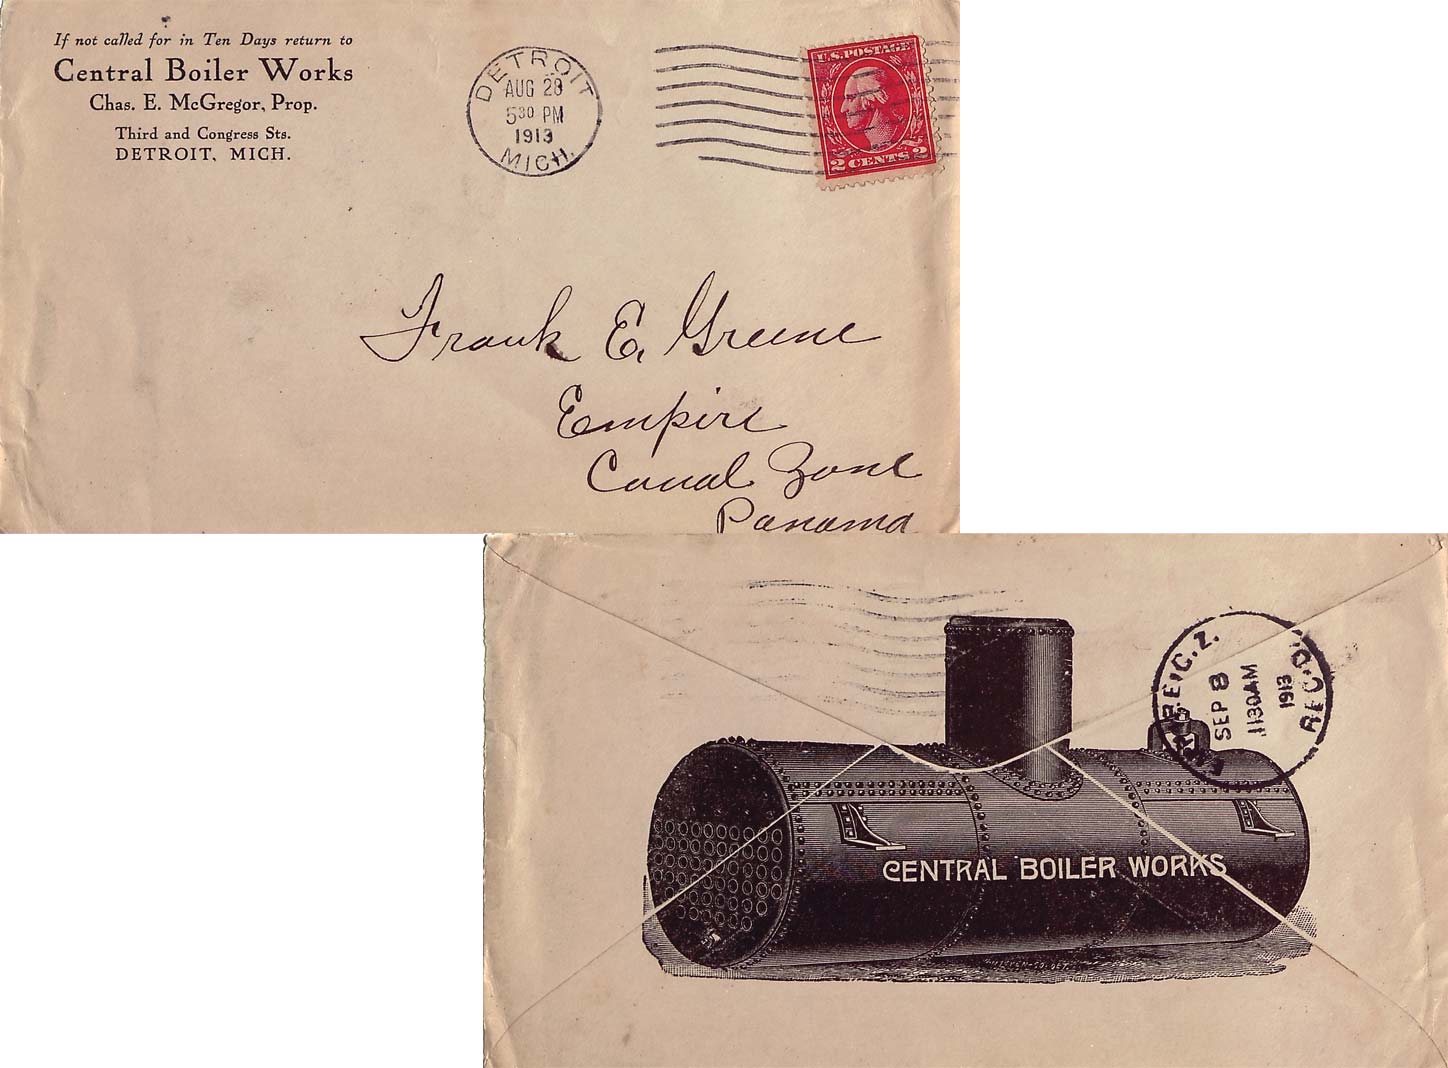 If not called for in Ten Days return to
Central Boiler Works
Chas. E. McGregor, Prop.
Third and Congress Sts.
DETROIT, MICH.
DETROIT
AUG 28
5 30 PM
1913
MICH.
U.S. POSTAGE
2 CENTS 2
Frank E. Greene
Empire
Canal Zone
Panama
C.Z.
SEP 8
1130AM
1913
REC'D.
CENTRAL BOILER WORKS